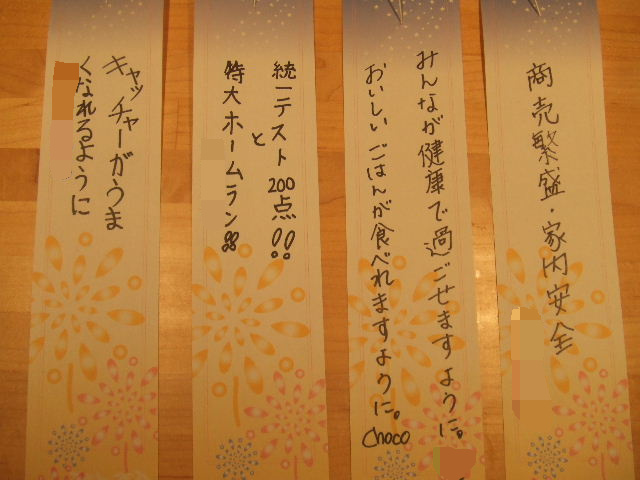 商売繁盛・家内安全
みんなが健康で過ごせますように。
おいしいごはんが食べれますように。
Choco
統一テスト200点!!
と
特大ホームラン!!
キャッチャーがうま
くなれるように